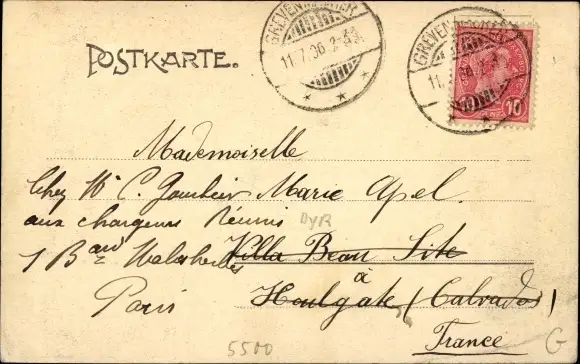 POSTKARTE.
GREVENMACHER
11.7.06.2-3
GREVENMACHER
11.7.06.2-3
10
Mademoiselle
Marie Apel.
Chez Mr C. Gautier
aux chargeurs Réunis
1 Bard Malesherbes
Paris
DYR
Villa Beau Site
à
Houlgate (Calvados)
France
5500
G